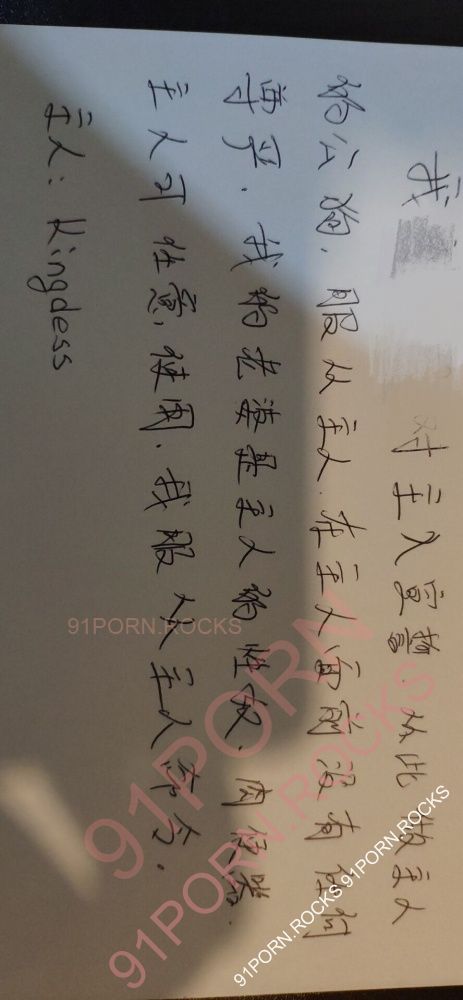 我 对主人宣誓 从此 做主人
的公狗，服从主人，在主人面前没有任何
尊严，我的老婆是主人的性奴、肉便器，
主人可任意使用，我服从主人命令。
主人：Kingdess
91PORN.ROCKS
91PORN
91PORN.ROCKS
91PORN.ROCKS 91PORN.ROCKS